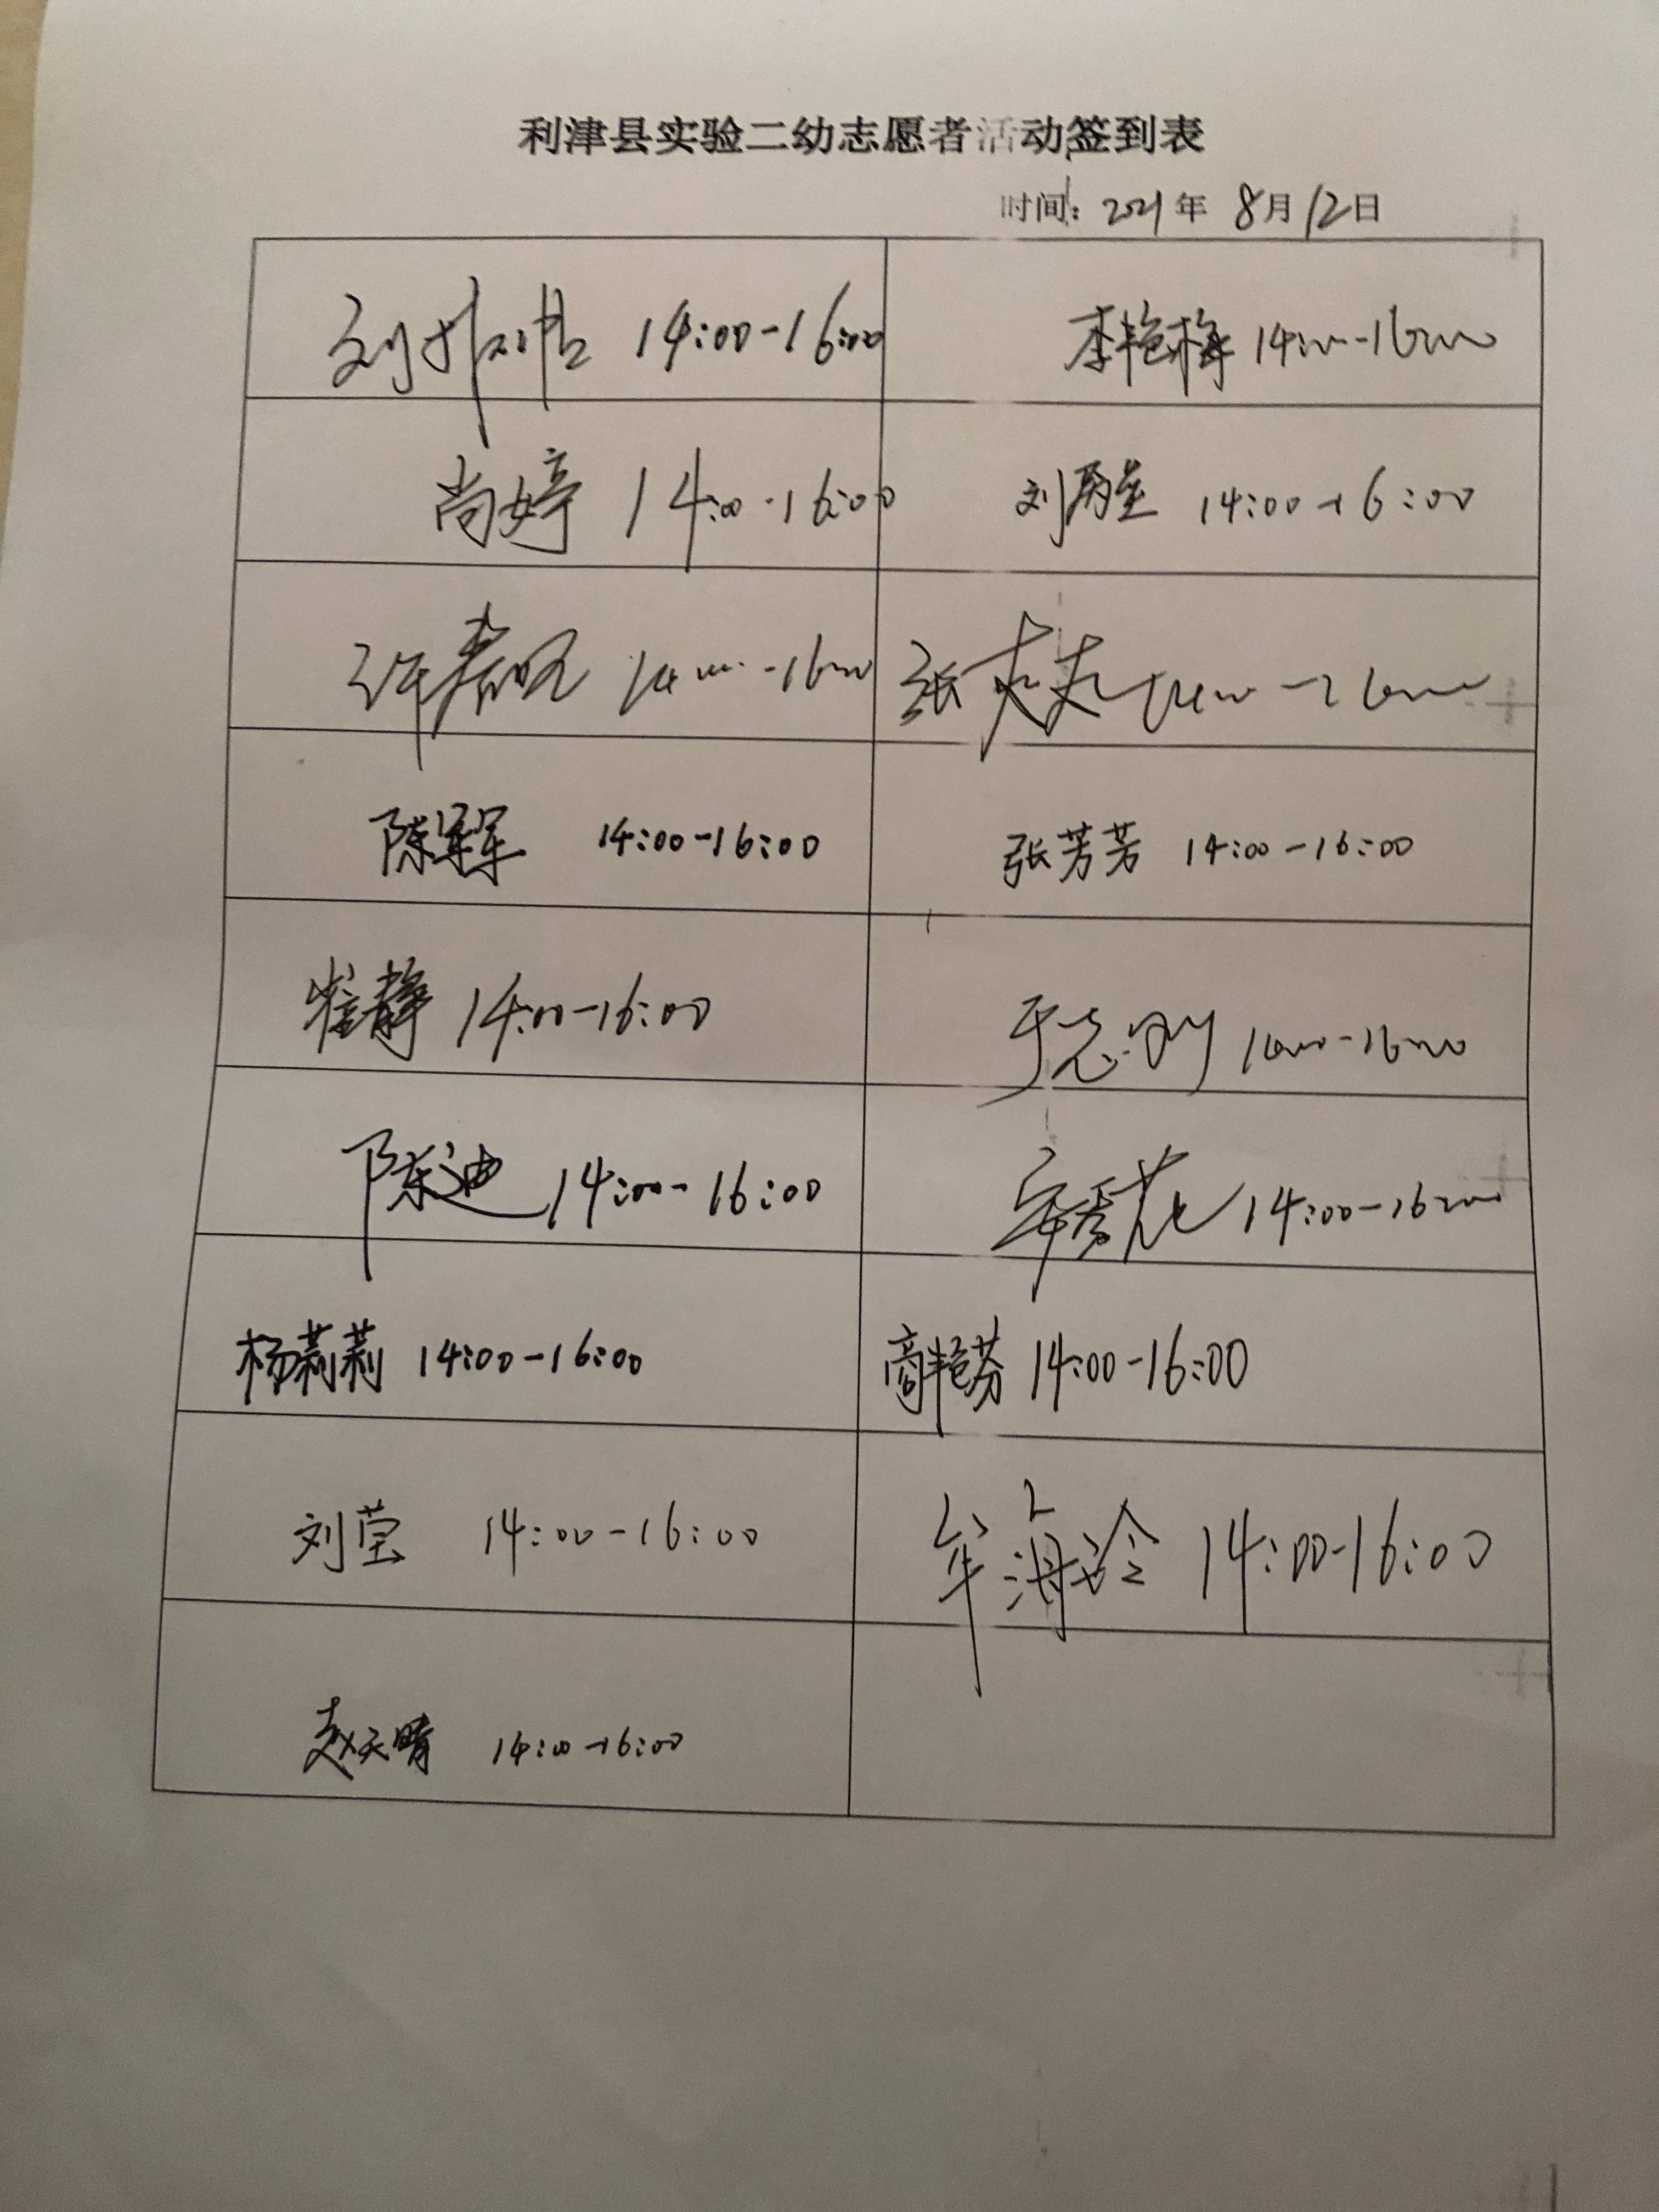 利津县实验二幼志愿者活动签到表
时间: 2021年 8月12日
刘 14:00-16:00
李艳梅 14:00-16:00
尚婷 14:00-16:00
刘 14:00-16:00
许 14:00-16:00
张 14:00-16:00
陈军军 14:00-16:00
张芳芳 14:00-16:00
崔静 14:00-16:00
于志刚 14:00-16:00
陈迪 14:00-16:00
14:00-16:00
杨莉莉 14:00-16:00
商艳芬 14:00-16:00
刘莹 14:00-16:00
牟海玲 14:00-16:00
赵天晴 14:00-16:00